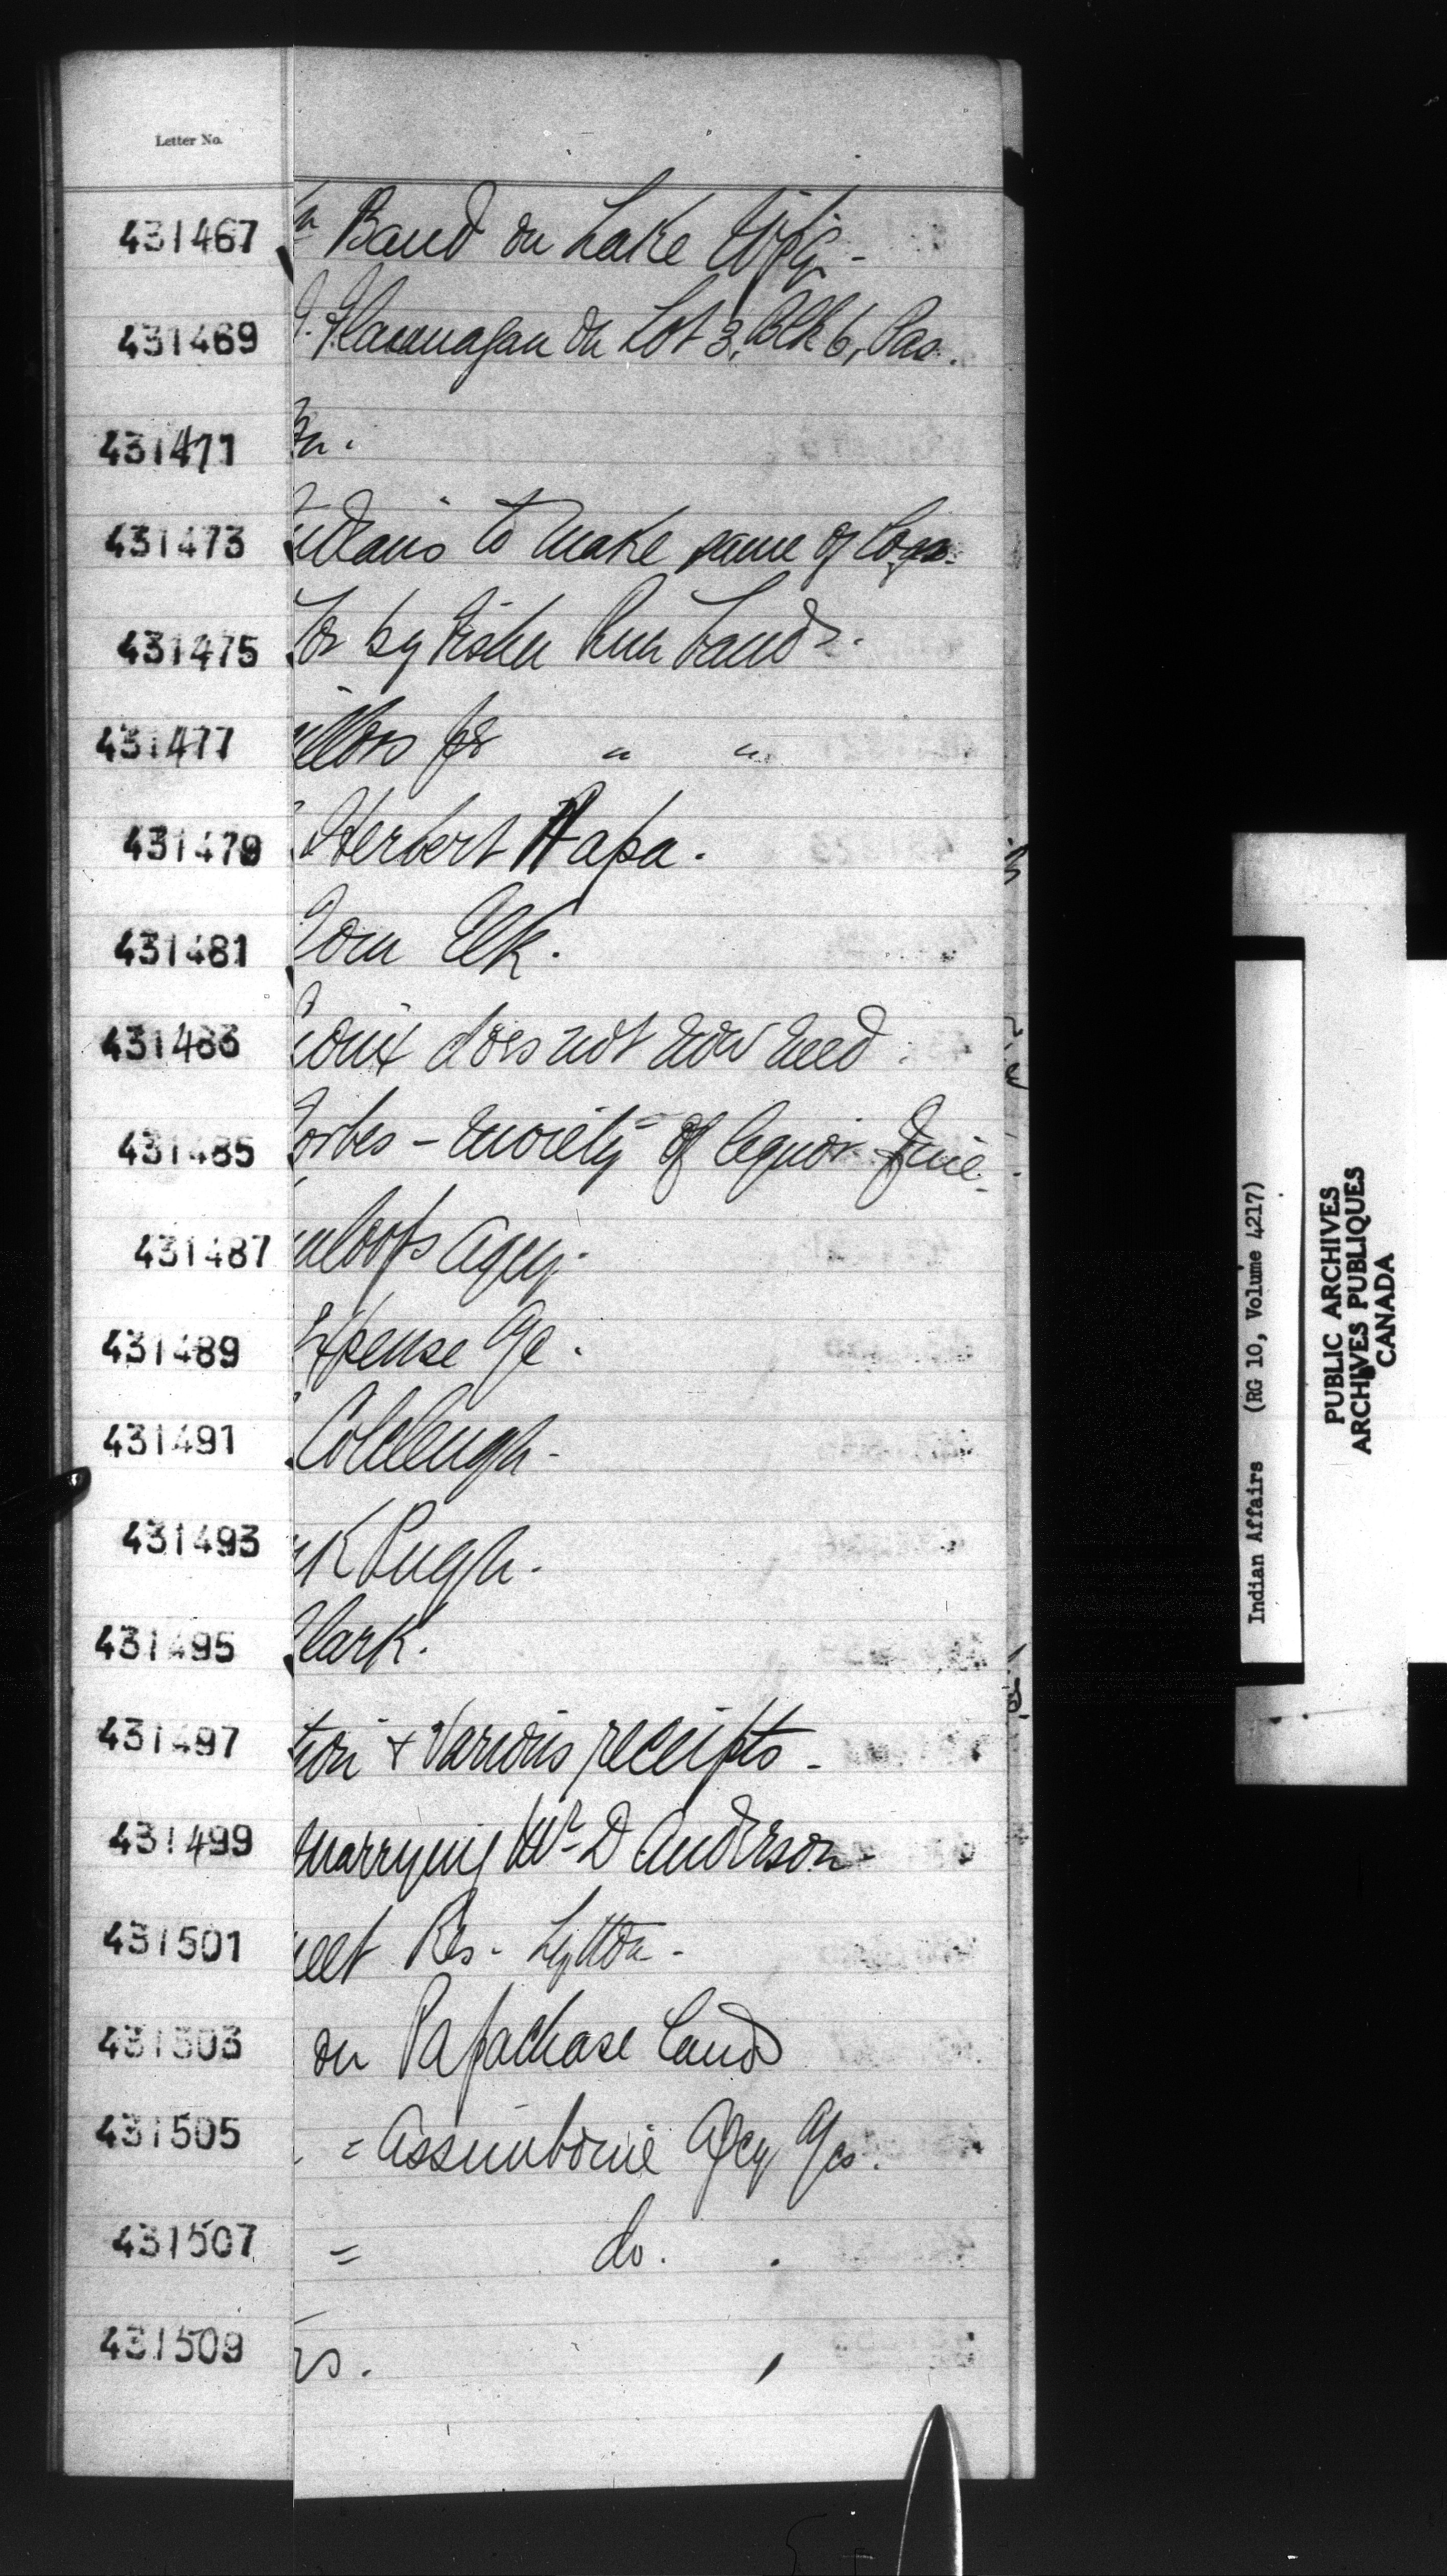 Letter No.
431467 Band on Lake Wpg -
431469 Flannagan on Lot 3, Blk 6, Pas.
431471
431473 to make same of logs.
431475 by Fisher Riv band.
431477 for " "
431479 Herbert Hapa.
431481 Tom Elk.
431483 does not now need
431485 orbes - moiety of liquor fine.
431487 mloops Agcy.
431489 xpense a/c.
431491 Colcleugh -
431493 K Pugh.
431495 Clark.
431497 tion & various receipts -
431499 marrying Wm D Anderson
431501 eet Res. Lytton -
431503 on Papachase Land
431505 = Assiniboine Agcy a/cs.
431507 = do.
431509 rs.
Indian Affairs (RG 10, Volume 4217)
PUBLIC ARCHIVES
ARCHIVES PUBLIQUES
CANADA